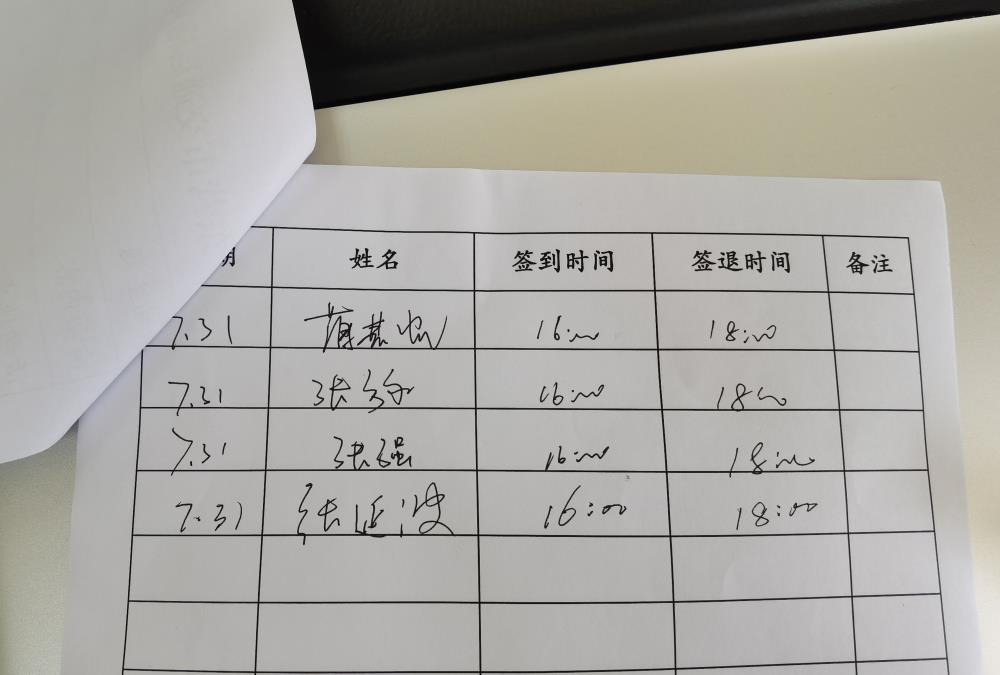 期 姓名 签到时间 签退时间 备注
7.31 16:00 18:00
7.31 张 16:00 18:00
7.31 张强 16:00 18:00
7.31 张延波 16:00 18:00